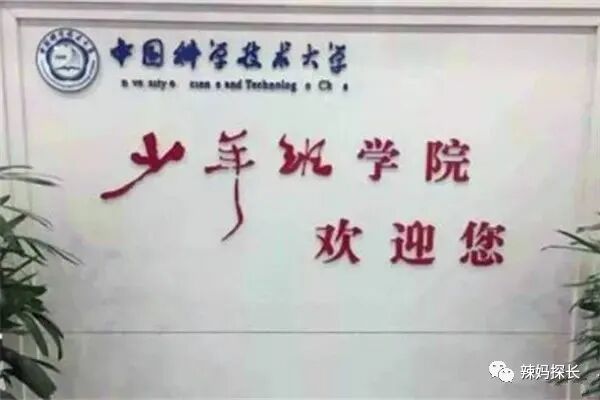 中国科学技术大学
and Technolog
少年班学院
欢迎您
辣妈探长